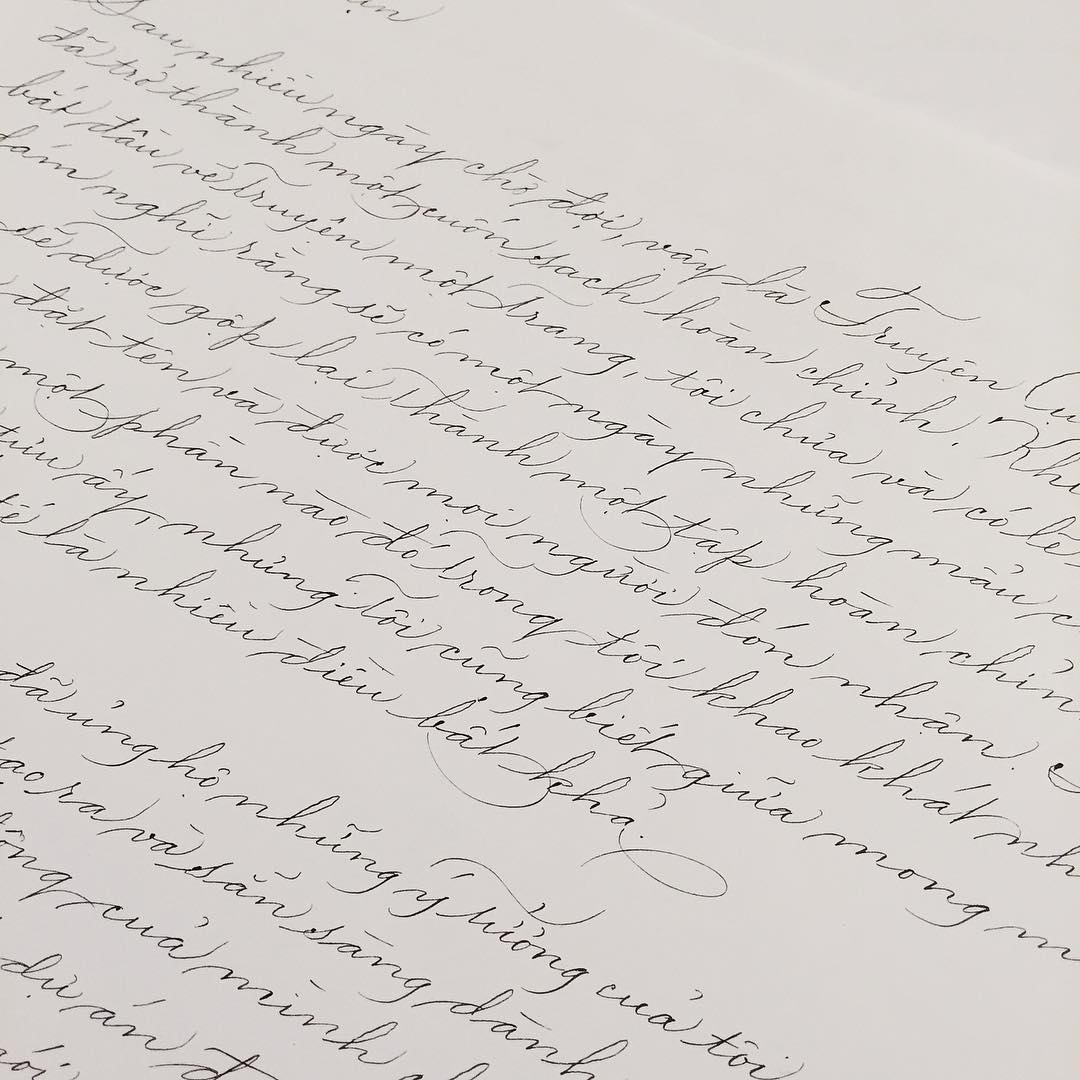 Sau nhiều ngày chờ đợi, vậy là Truyện
đã trở thành một cuốn sách hoàn chỉnh. Khi
bắt đầu vẽ Truyện một trang, tôi chưa và có lẽ
dám nghĩ rằng sẽ có một ngày những mẩu
sẽ được gộp lại thành một tập hoàn chỉn
đặt tên và được mọi người đón nhận.
một phần nào đó trong tôi khao khát nh
ấy, nhưng tôi cũng biết giữa mong m
tế là nhiều điều bất khả.
đã ủng hộ những ý tưởng của tôi
tạo ra và sẵn sàng dành
của mình
dự án